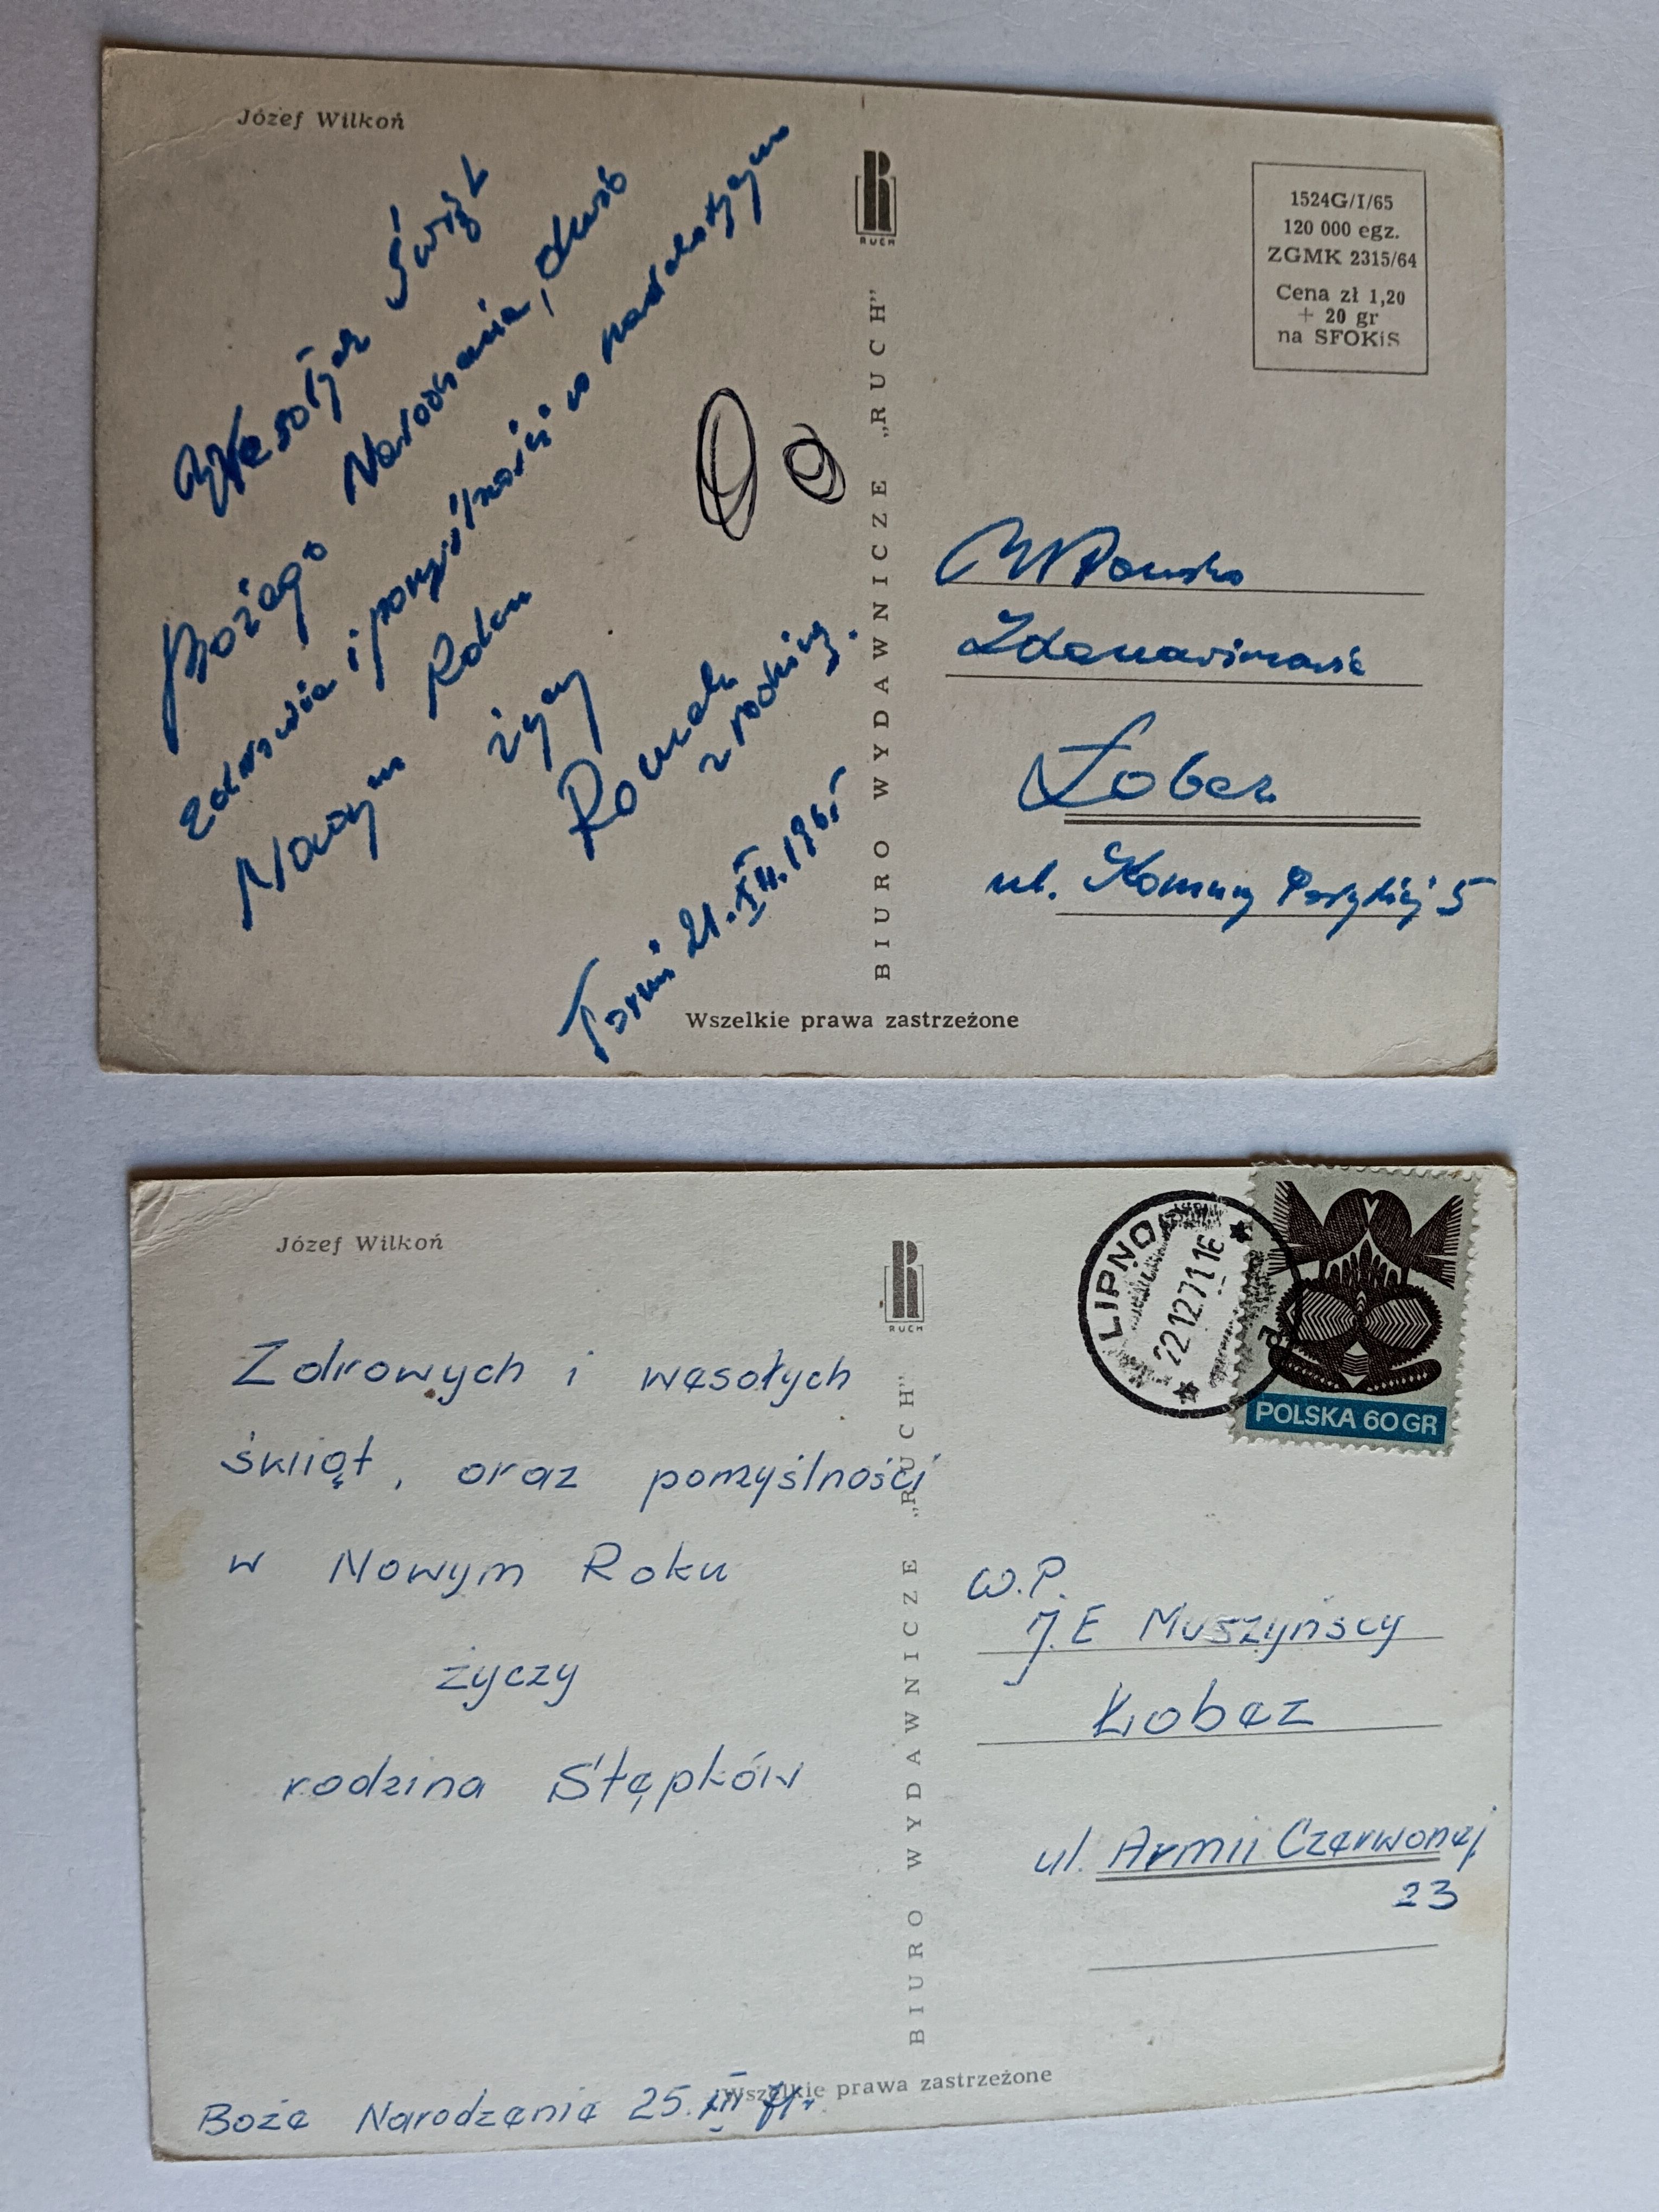 Józef Wilkoń
Wesołych Świąt
Bożego Narodzenia, dużo
zdrowia i pomyślności w nadchodzącym
Nowym Roku
życzy
Romek
z rodziną.
Toruń 21.XII.1965
RUCH
BIURO WYDAWNICZE „RUCH”
1524G/I/65
120 000 egz.
ZGMK 2315/64
Cena zł 1,20
+ 20 gr
na SFOKiS
Łobez
ul. Komuny Paryskiej 5
Wszelkie prawa zastrzeżone
Józef Wilkoń
Zdrowych i wesołych
świąt, oraz pomyślności
w Nowym Roku
życzy
rodzina Stępków
Boże Narodzenie 25.XII 71r.
RUCH
BIURO WYDAWNICZE „RUCH”
LIPNO
22.12.71.16
a
POLSKA 60 GR
W.P.
J.E Muszyńscy
Łobez
ul. Armii Czerwonej
23
Wszelkie prawa zastrzeżone